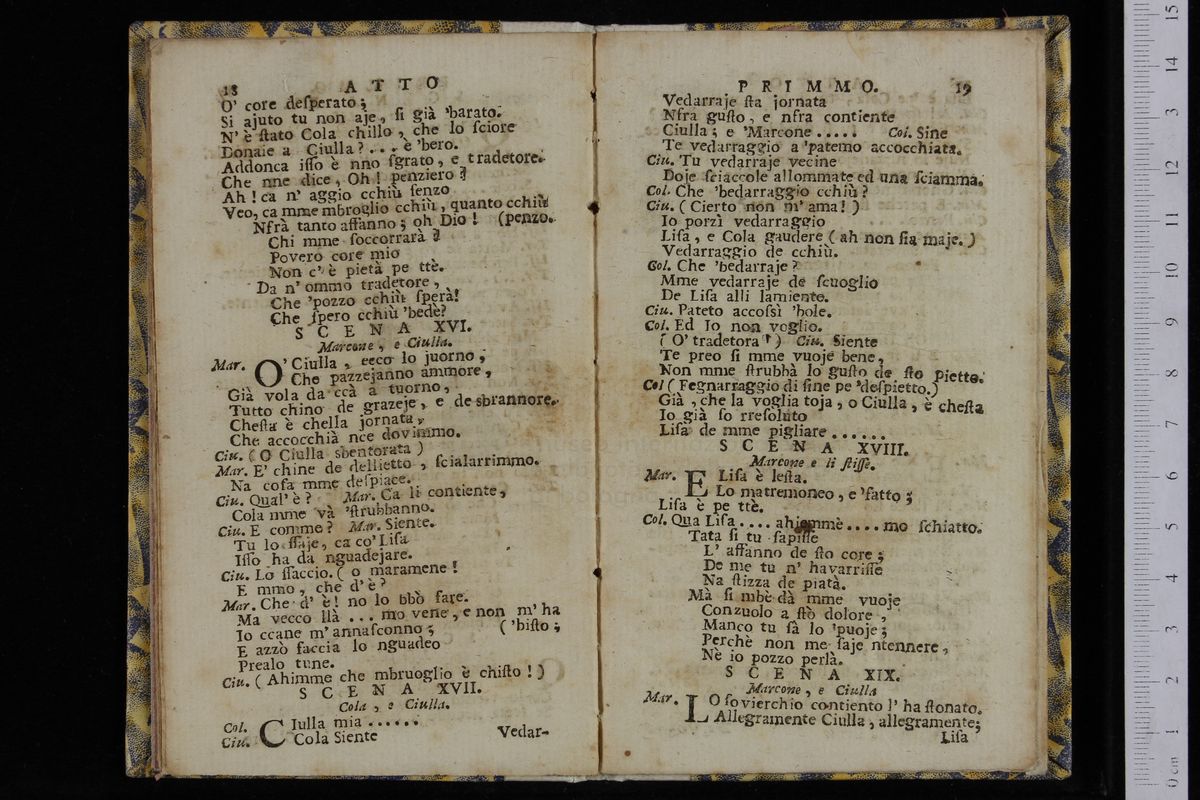 18 ATTO
O' core desperato;
Si ajuto tu non aje, si già 'barato.
N' è stato Cola chillo, che lo sciore
Donaie a Ciulla? ... è 'bero.
Addonca isso è nno sgrato, e tradetore.
Che nne dice, Oh! penziero?
Ah! ca n' aggio cchiù senzo
Veo, ca mme mbroglio cchiù, quanto cchiù
Nfrà tanto affanno; oh Dio! (penzo.
Chi mme soccorrarà?
Povero core mio
Non c' è pietà pe ttè.
Da n' ommo tradetore,
Che 'pozzo cchiù sperà!
Che spero cchiù 'bedè?
SCENA XVI.
Marcone, e Ciulla.
Mar. O' Ciulla, ecco lo juorno,
Che pazzejanno ammore,
Già vola da ccà a tuorno,
Tutto chino de grazeje, e de sbrannore.
Chesta è chella jornata,
Che accocchià nce dovimmo.
Ciu. (O Ciulla sbentorata)
Mar. E' chine de dellietto, scialarrimmo.
Na cosa mme despiace.
Ciu. Qual' è? Mar. Ca li contiente,
Cola mme và 'strubbanno.
Ciu. E comme? Mar. Siente.
Tu lo ssaje, ca co' Lisa
Isso ha da nguadejare.
Ciu. Lo ssaccio. (o maramene!
E mmo, che d' è?
Mar. Che d' è! no lo bbò fare.
Ma vecco llà ... mo vene, e non m' ha
Io ccane m' annasconno; ('bisto;
E azzò faccia lo nguadeo
Prealo tune.
Ciu. (Ahimme che mbruoglio è chisto!)
SCENA XVII.
Cola, e Ciulla.
Col. Ciulla mia ......
Ciu. Cola Siente
Vedar-
PRIMMO. 19
Vedarraje sta jornata
Nfra gusto, e nfra contiente
Ciulla; e 'Marcone ..... Col. Sine
Te vedarraggio a 'patemo accocchiata.
Ciu. Tu vedarraje vecine
Doje sciaccole allommate ed una sciamma.
Col. Che 'bedarraggio cchiù?
Ciu. (Cierto non m' ama!)
Io porzì vedarraggio
Lisa, e Cola gaudere (ah non sia maje.)
Vedarraggio de cchiù.
Col. Che 'bedarraje?
Mme vedarraje de scuoglio
De Lisa alli lamiente.
Ciu. Pateto accossì 'bole.
Col. Ed Io non voglio.
(O' tradetora!) Ciu. Siente
Te preo si mme vuoje bene,
Non mme strubbà lo gusto de sto pietto.
Col (Fegnarraggio di sine pe 'despietto.)
Già, che la voglia toja, o Ciulla, è chesta
Io già so rresoluto
Lisa de mme pigliare ......
SCENA XVIII.
Marcone e li stisse.
Mar. E Lisa è lesta.
Lo matremoneo, e 'fatto;
Lisa è pe ttè.
Col. Qua Lisa .... ahiemmè .... mo schiatto.
Tata si tu sapisse
L' affanno de sto core;
De me tu n' havarrisse
Na stizza de piatà.
Mà si mbè dà mme vuoje
Conzuolo a stò dolore,
Manco tu sà lo 'puoje;
Perchè non me saje ntennere,
Nè io pozzo perlà.
SCENA XIX.
Marcone, e Ciulla
Mar. Lo sovierchio contiento l' ha stonato.
Allegramente Ciulla, allegramente;
Lisa